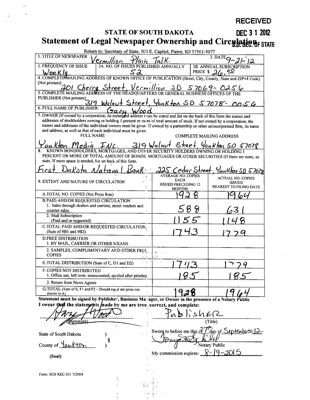 RECEIVED
DEC 31 2012
STATE OF SOUTH DAKOTA
Statement of Legal Newspaper Ownership and Circulation
Return to: Secretary of State, 500 E. Capitol, Pierre, SD 57501-5077
1. TITLE OF NEWSPAPER Vermillion Plain Talk 2. DATE 9-21-12
3. FREQUENCY OF ISSUE Weekly
3A. NO. OF ISSUES PUBLISHED ANNUALLY 52
3B. ANNUAL SUBSCRIPTION PRICE $ 26.98
4. COMPLETE MAILING ADDRESS OF KNOWN OFFICE OF PUBLICATION (Street, City, County, State and ZIP+4 Code) (Not printers)
201 Cherry Street, Vermillion SD 57069-0256
5. COMPLETE MAILING ADDRESS OF THE HEADQUARTERS OR GENERAL BUSINESS OFFICES OF THE PUBLISHER (Not printers)
319 Walnut Street, Yankton SD 57078-0056
6. FULL NAME OF PUBLISHER: Gary Wood
7. OWNER (If owned by a corporation, its name and address must be stated and also on the back of this form the names and
addresses of stockholders owning or holding 1 percent or more of total amount of stock. If not owned by a corporation, the
names and addresses of the individual owners must be given. If owned by a partnership or other unincorporated firm, its name
and address, as well as that of each individual must be given.
FULL NAME COMPLETE MAILING ADDRESS
Yankton Media Inc. 319 Walnut Street, Yankton SD 57078
8. KNOWN BONDHOLDERS, MORTGAGES, AND OTHER SECURITY HOLDERS OWNING OR HOLDING 1
PERCENT OR MORE TOTAL AMOUNT OF BONDS, MORTGAGES OR OTHER SECURITIES (If there are none, so
state. If more space is needed, list on back of this form.
First Dakota National Bank 225 Cedar Street, Yankton SD 57078
9. EXTENT AND NATURE OF CIRCULATION
AVERAGE NO. COPIES EACH ISSUED PRECEDING 12 MONTHS
ACTUAL NO. COPIES ISSUED NEAREST TO FILING DATE
A. TOTAL NO. COPIES (Net Press Run) 1928 1964
B. PAID AND/OR REQUESTED CIRCULATION
1. Sales through dealers and carriers, street vendors and counter sales. 588 631
2. Mail Subscription (Paid and or requested) 1155 1148
C. TOTAL PAID AND/OR REQUESTED CIRCULATION (Sum of 9B1 and 9B2) 1743 1779
D. FREE DISTRIBUTION
1. BY MAIL, CARRIER OR OTHER MEANS
2. SAMPLES, COMPLIMENTARY AND OTHER FREE COPIES
E. TOTAL DISTRIBUTION (Sum of C, D1 and D2) 1743 1779
F. COPIES NOT DISTRIBUTED
1. Office use, left over, unaccounted, spoiled after printing 185 185
2. Return from News Agents
G. TOTAL (Sum of E, F1 and F2 - Should equal net press run shown in A) 1928 1964
Statement must be signed by Publisher, Business Manager, or Owner in the presence of a Notary Public
I swear that the statements made by me are true, correct, and complete:
Gary Wood Publisher
(Signature) (Title)
State of South Dakota )
County of Yankton )
Sworn to before me this 21 day of September 12
Notary Public
(Seal)
My commission expires: 8-19-2015
Form: SOS REC 051 7/2004